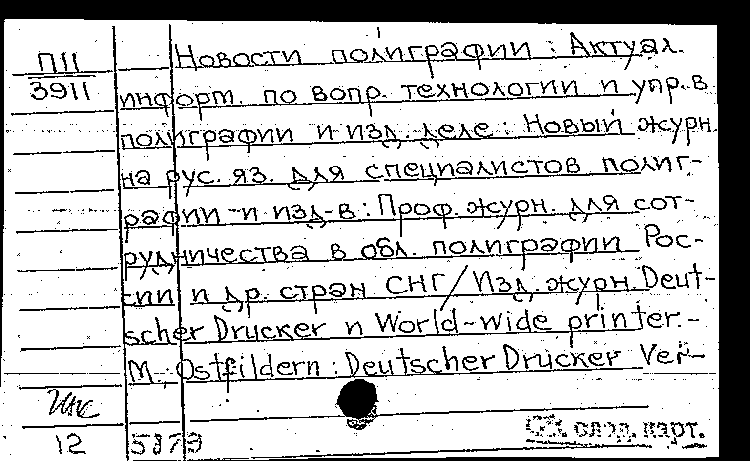 П11
3911
Новости полиграфии : Актуал.
информ. по вопр. технологии и упр. в
полиграфии и изд. деле : Новый журн.
на рус. яз. для специалистов полиг-
рафии и изд-в : Проф. журн. для сот-
рудничества в обл. полиграфии Рос-
сии и др. стран СНГ / Изд. журн. Deut-
scher Drucker и World-wide printer. -
М.; Ostfildern : Deutscher Drucker Ver-
12
См. след. карт.